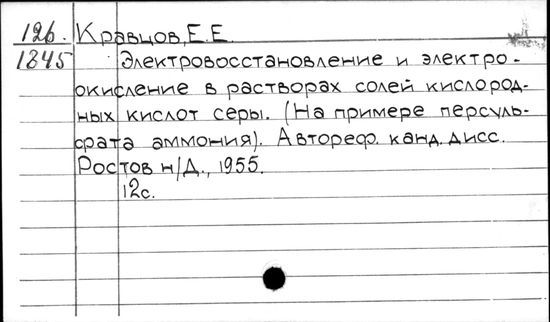 126. Кравцов, Е.Е.
1845 Электровосстановление и электро-
окисление в растворах солей кислород-
ных кислот серы. (На примере персуль-
фата аммония). Автореф. канд. дисс.
Ростов н/Д., 1955.
12с.